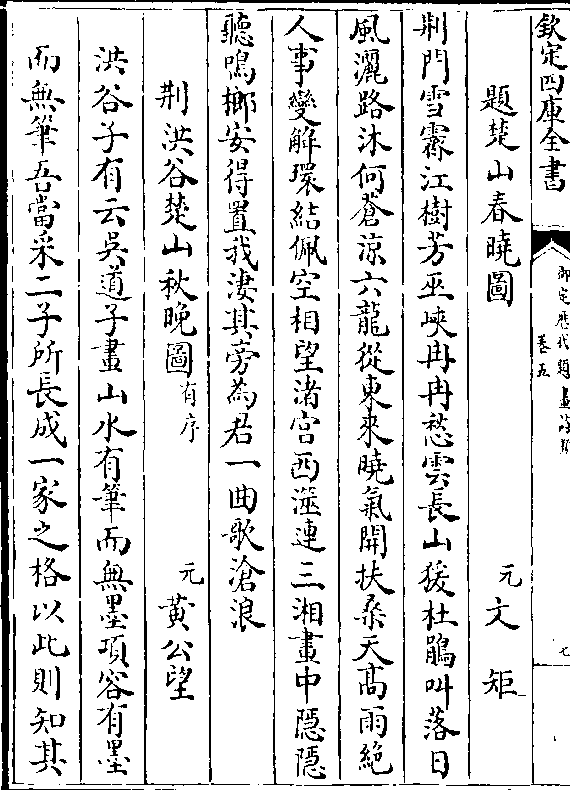 欽定四庫全書
御定歴代題畫詩類
卷五
七
題楚山春曉圖
元 文矩
荆門雪霽江樹芳巫峽冉冉愁雲長山猨杜鵑叫落日
風灑路沐何蒼涼六龍從東來曉氣開扶桑天髙雨絶
人事變解環結佩空相望渚宫西遊連三湘畫中隠隠
聽鳴榔安得置我淒其旁為君一曲歌滄浪
荆洪谷楚山秋晚圖有序
元 黄公望
洪谷子有云吳道子畫山水有筆而無墨項容有墨
而無筆吾當采二子所長成一家之格以此則知其